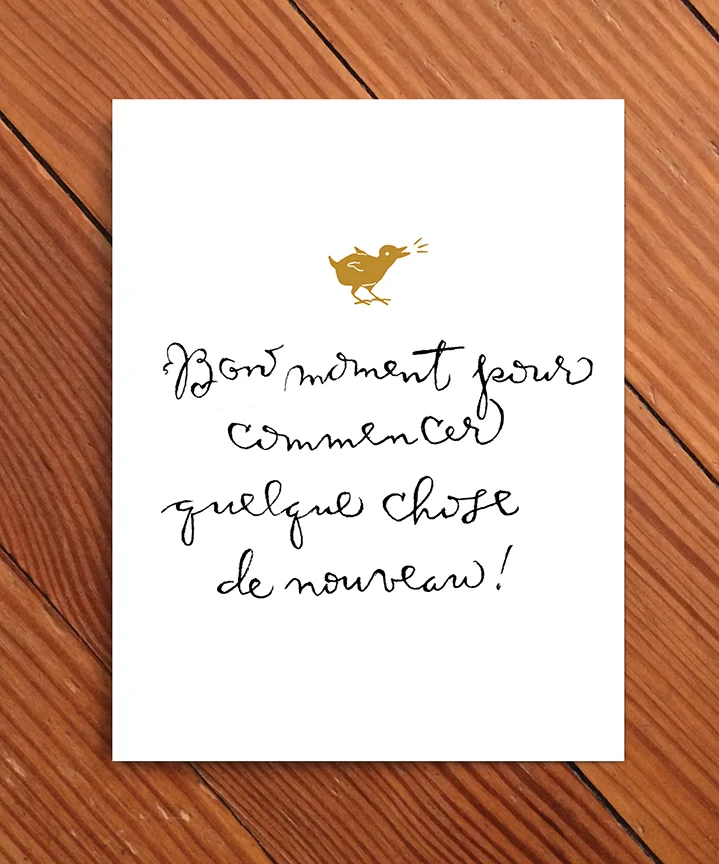 Bon moment pour
commencer
quelque chose
de nouveau!